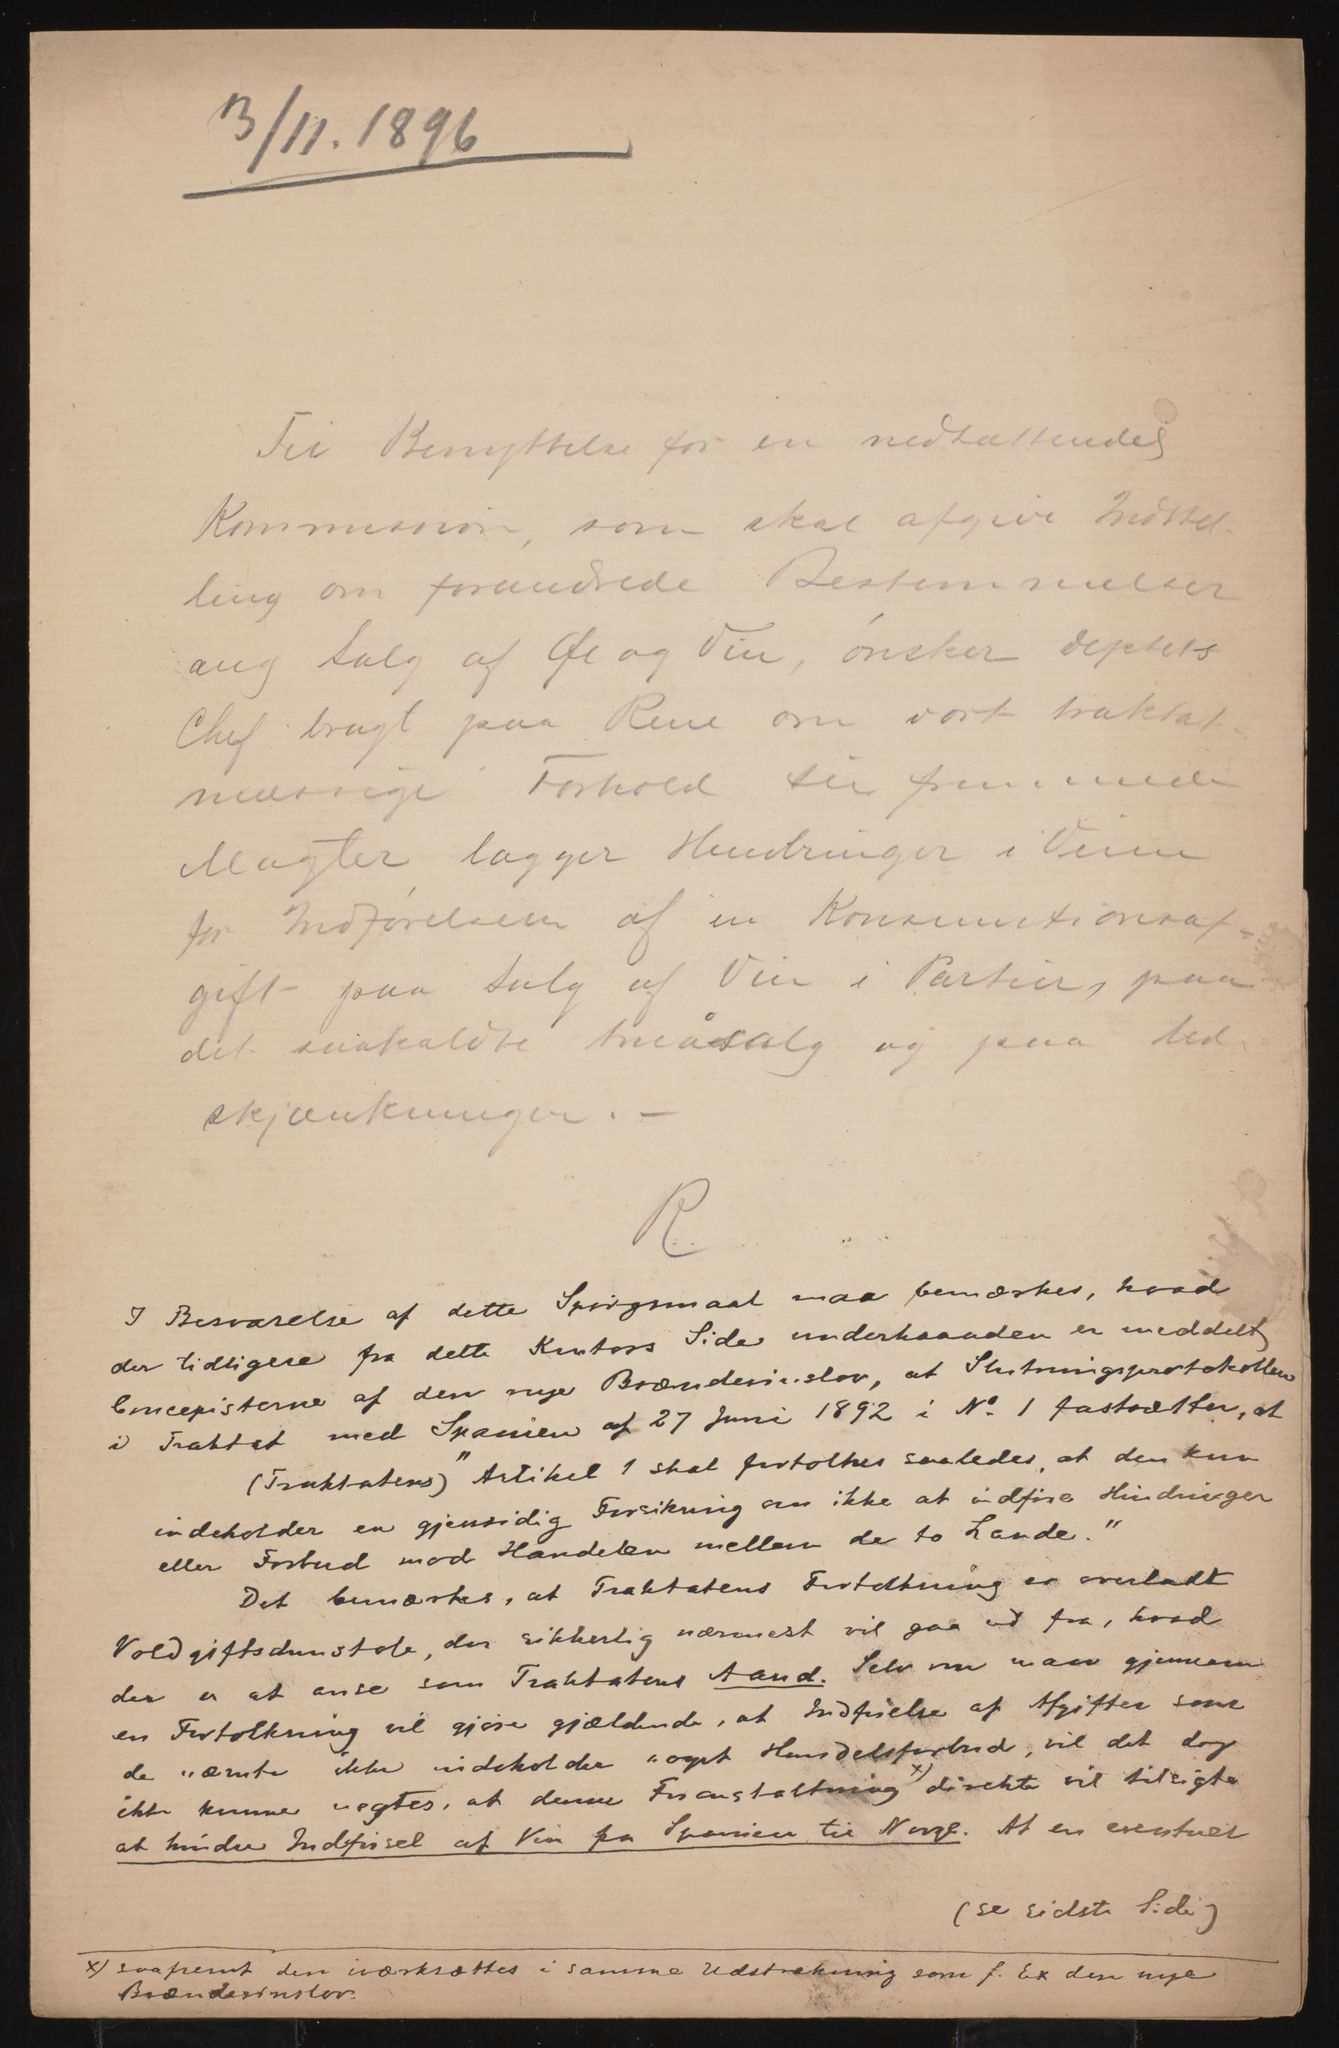 3/11. 1896
Til Benyttelse for en nedsættendes
Kommission, som skal afgive Indstil-
ling om forandrede Bestemmelser
ang Salg af Øl og Vin, ønsker Deptets
Chef bragt paa Rene om vort traktat-
mæssige Forhold til fremmede
Magter lægger Hindringer i Veien
for Indførelsen af en Konsumtionsaf-
gift paa Salg af Vin i Partier, paa
det saakaldte småsalg og paa Ud-
skjænkningen. —
R.
I Besvarelse af dette Spørgsmaal maa bemærkes, hvad
der tidligere fra dette Kontors Side underhaanden er meddelt
Concepisterne af den nye Brændevinslov, at Slutningsprotokollen
i Traktat med Spanien af 27 Juni 1892 i No. 1 fastsætter, at
(Traktatens) "Artikel 1 skal fortolkes saaledes, at den kun
indeholder en gjensidig Forsikring om ikke at indføre Hindringer
eller Forbud mod Handelen mellem de to Lande."
Det bemærkes, at Traktatens Fortolkning er overladt
Voldgiftsdomstole, der sikkerlig nærmest vil gaa ud fra, hvad
der er at anse som Traktatens Aand. Selv om man gjennem
en Fortolkning vil gjøre gjældende, at Indførelse af Afgifter som
de nævnte ikke indeholder noget Handelsforbud, vil det dog
ikke kunne negtes, at denne Foranstaltning x) direkte vil tilsigte
at hindre Indførsel af Vin fra Spanien til Norge. At en eventuel
(se sidste Side)
x) saafremt den iværksættes i samme Udstrækning som f. Ex den nye
Brændevinslov.